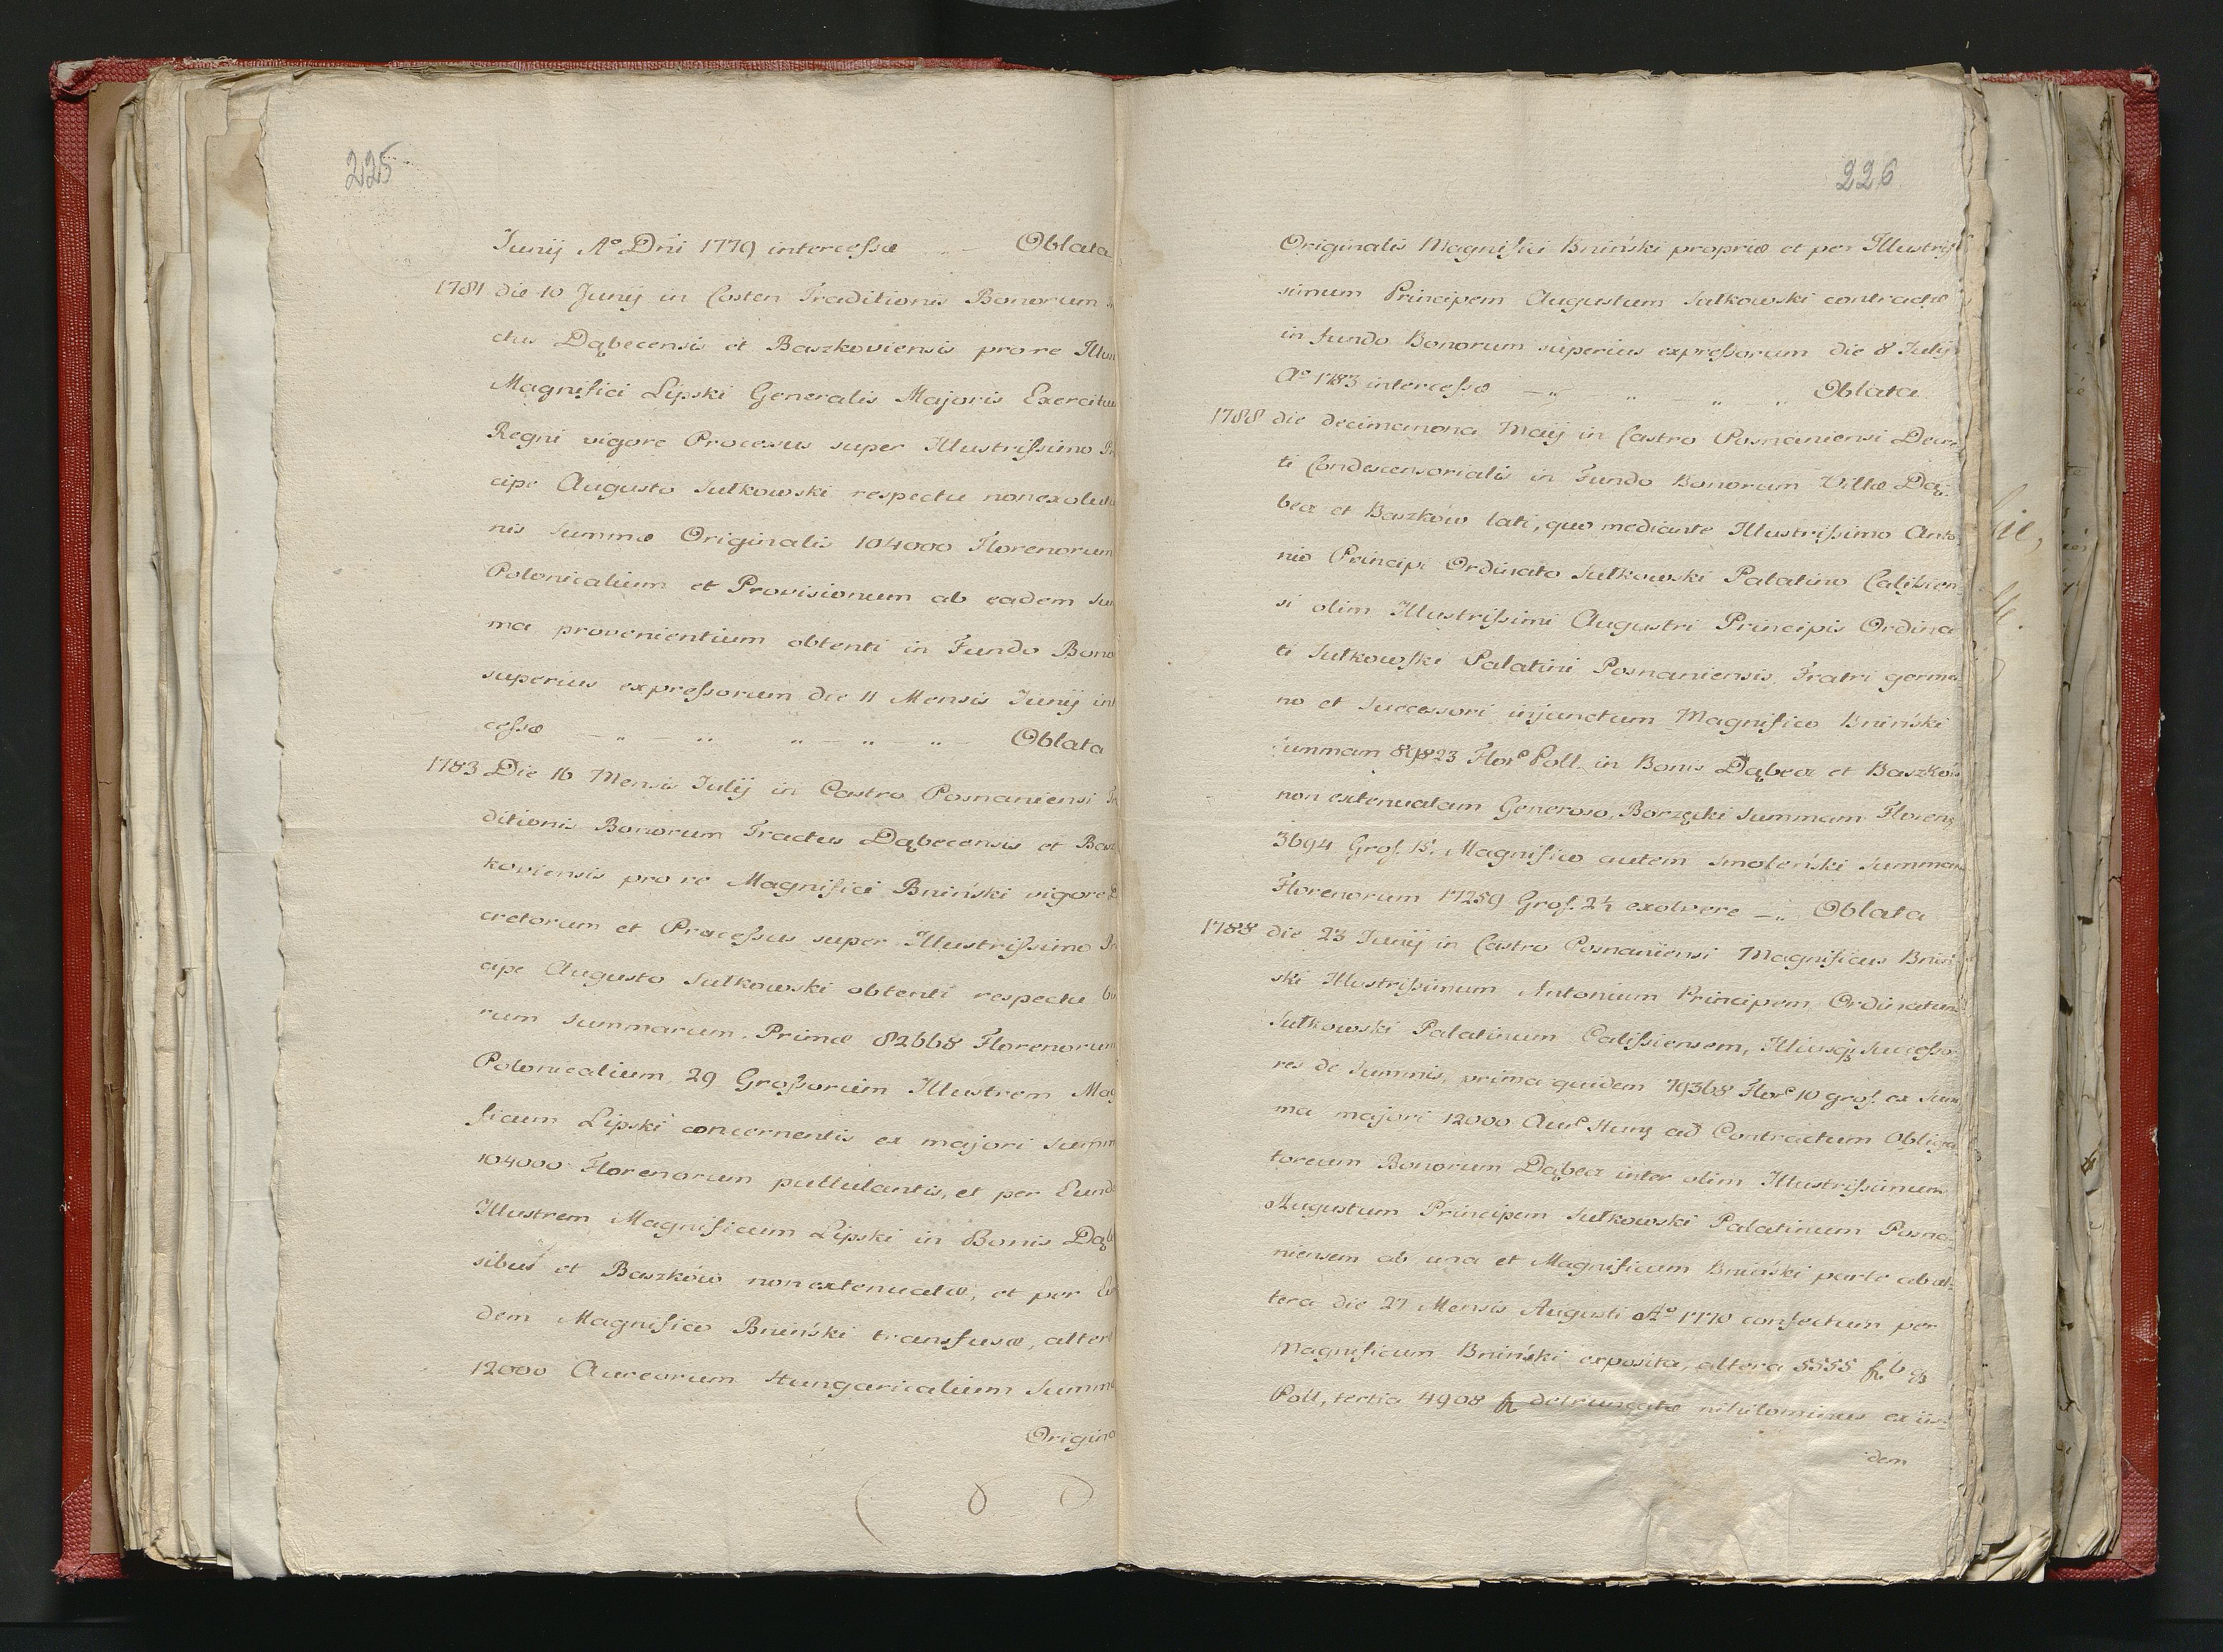 225
Junij Aº Dni 1779 intercessæ Oblata
1781 die 10 Junij in Costen Traditionis Bonorum
ctus Dąbecensis et Baszkoviensis pro re Illus
Magnifici Lipski Generalis Majoris Exercituu
Regni vigore Processus super Illustrissimo Pr
cipe Augusto Sułkowski respectu non exolutio
nis Summæ Originalis 104000 Florenorum
Polonicalium et Provisionum ab eadem Su
ma provenientium obtenti in Fundo Bono
superius expressorum die 11 Mensis Junij int
cessæ — „ — „ „ — „ — „ — Oblata
1783 Die 16 Mensis Julij in Castro Posnaniensi Tra
ditionis Bonorum Tractus Dąbecensis et Basz
koviensis pro re Magnifici Bniński vigore
cretorum et Processus super Illustrissimo Pr
cipe Augusto Sułkowski obtenti respectu
rum summarum. Primæ 82668 Florenorum
Polonicalium 29 Grossorum Illustrem Mag
ficum Lipski concernentis ex majori Summ
104000 Florenorum pullulantis, et per Eund
Illustrem Magnificum Lipski in Bonis Dąb
sibus et Baszków non extenuatæ, et per
dem Magnifico Bniński transfusæ, alter
12000 Aureorum Hungaricalium Summ
Origina
226
Originalis Magnifici Bniński propriæ et per Illustris
simum Principem Augustum Sułkowski contractæ
in fundo Bonorum superius expressorum die 8 Julij
Aº 1783 intercessæ — „ „ „ „ Oblata
1788 die decimanona Maij in Castro Posnaniensi Decre
ti Condescensorialis in Fundo Bonorum Villæ Dą-
bea et Baszków lati, quo mediante Illustrissimo Anto
nio Principi Ordinato Sułkowski Palatino Calissien
si olim Illustrissimi Augustri Principis Ordina
ti Sułkowski Palatini Posnaniensis, Fratri germa
no et Successori injunctum Magnifico Bniński
summam Flor Poll. in Bonis Dąbea et Baszków
non extenuatam Generoso Borzęcki Summam Floreng
3694 Gros. 15. Magnifico autem Smoleński Summam
Florenorum 17259 Gros. 24 exolvere — „ Oblata
1788 die 23 Junij in Castro Posnaniensi Magnificus Bniń
ski Illustrissimum Antonium Principem Ordinatum
Sułkowski Palatinum Calissiensem, Illiusq Successo
res de Summis, prima quidem 79368 Flor 10 gros. ex Sum
ma majori 12000 Aur Hung ad Contractum Obliga
torium Bonorum Dąbea inter olim Illustrissimum
Augustum Principem Sułkowski Palatinum Posna-
niensem ab una et Magnificum Bniński parte ab al-
tera die 27 Mensis Augusti Aº 1770 confectum per
Magnificum Bniński exposita, altera 5555 fl 6 g
Poll, tertia 4908 fl detruncatæ nihilominus ex iis-
dem